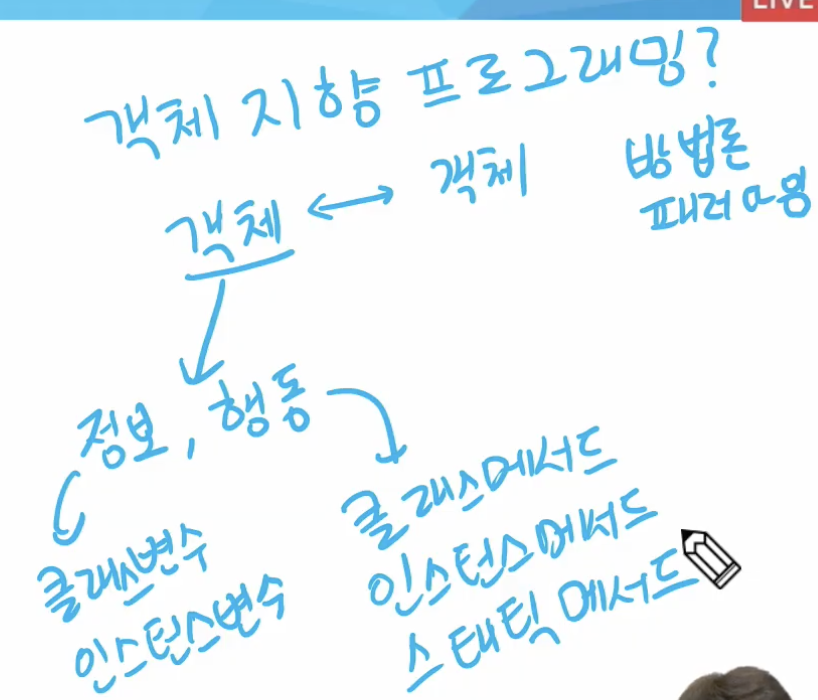 LIVE
객체 지향 프로그래밍?
객체 ↔ 객체
방법론
패러다임
정보, 행동
클래스변수
인스턴스변수
클래스메서드
인스턴스메서드
스태틱 메서드